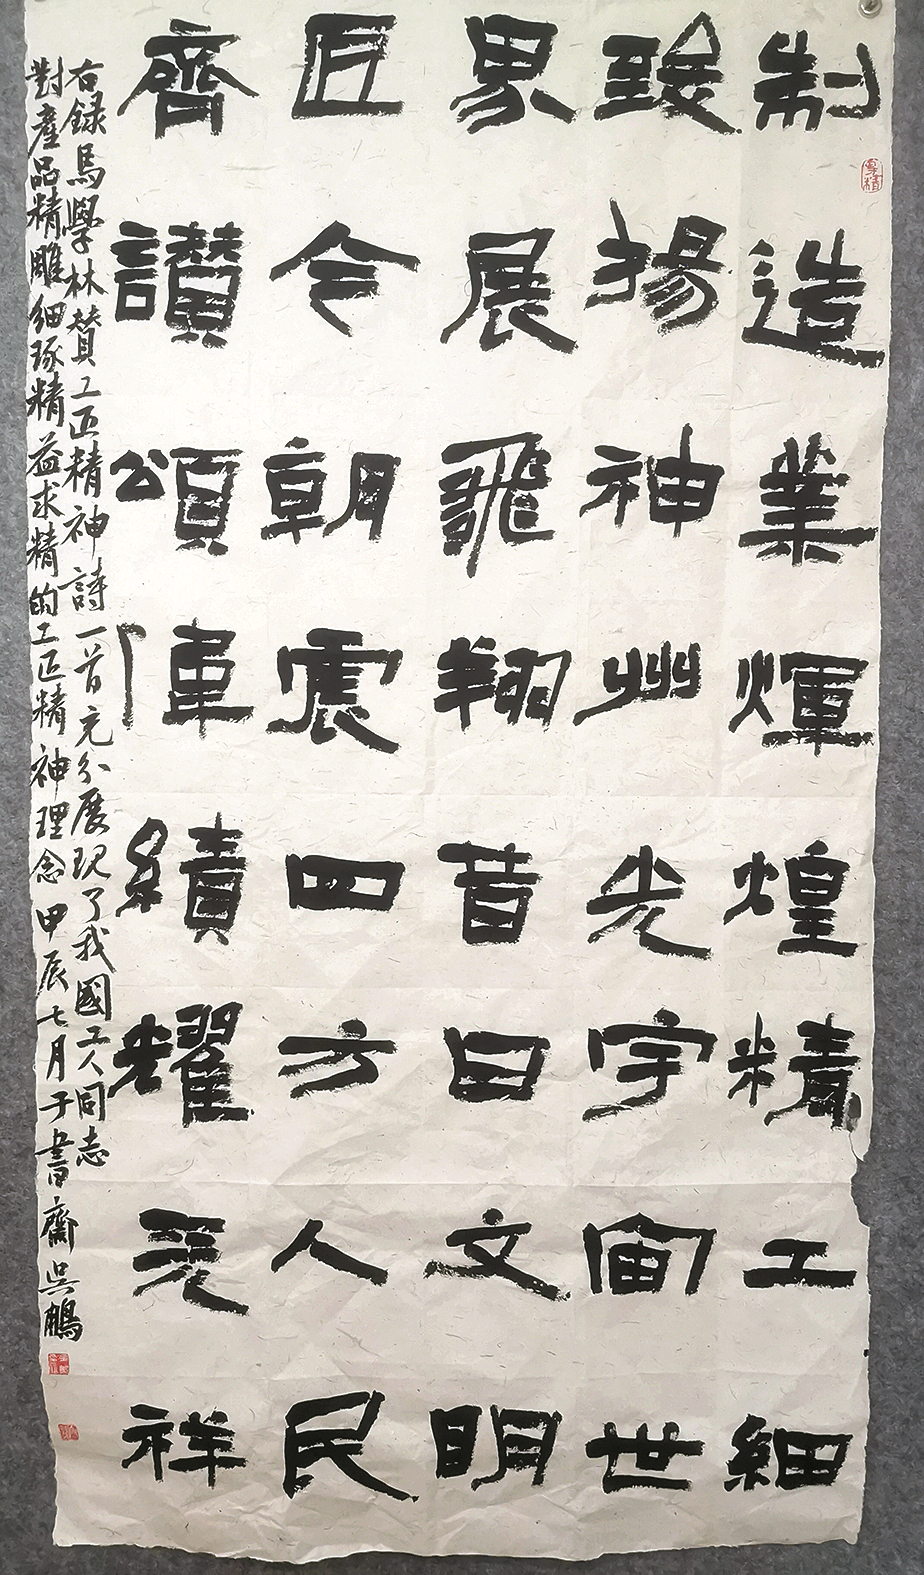 專精
制造業煇煌精工細
致揚神州光宇宙世
界展飛翔昔日文明
匠今朝震四方人民
齊讃頌偉績耀祥
右録馬學林賛工匠精神詩一首充分展现了我國工人同志
對產品精雕細琢精益求精的工匠精神理念甲辰七月于書齋吳鵬